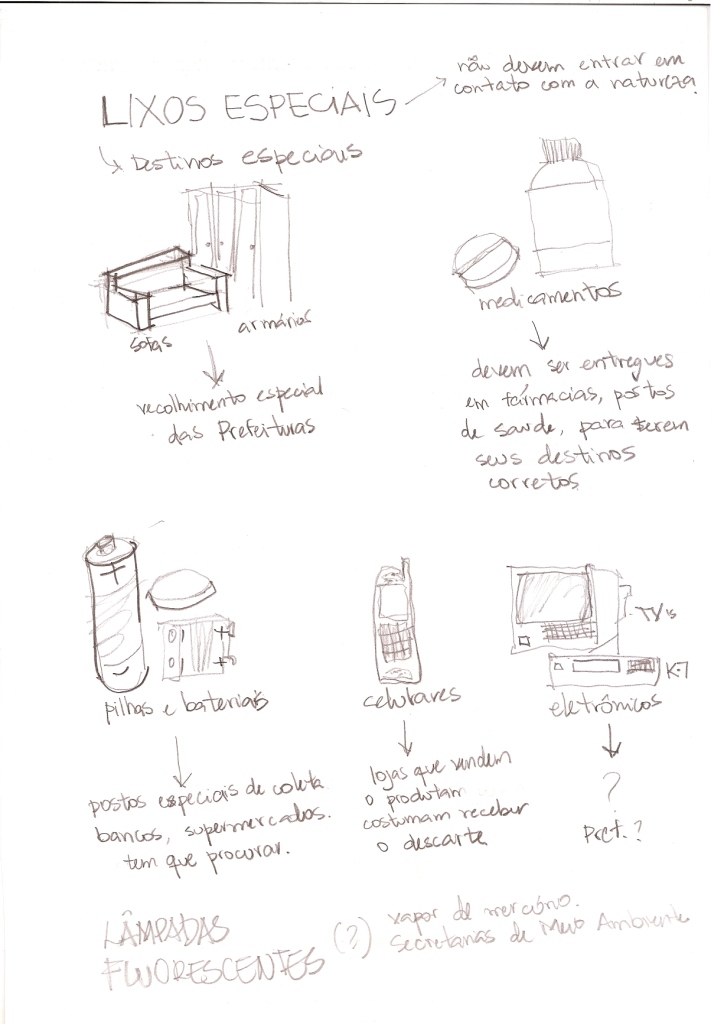 não devem entrar em
contato com a natureza!
LIXOS ESPECIAIS
Destinos especiais
sofas
armários
recolhimento especial
das Prefeituras
medicamentos
devem ser entregues
em fármacias, postos
de saude, para terem
seus destinos
corretos
pilhas e bateriais
postos especiais de coleta
bancos, supermercados.
tem que procurar.
celulares
lojas que vendem
o produtam
costumam receber
o descarte
TV's
K-7
eletrônicos
?
Pref.?
LÂMPADAS
FLUORESCENTES
(?)
vapor de mercúrio.
Secretarias de Meio Ambiente